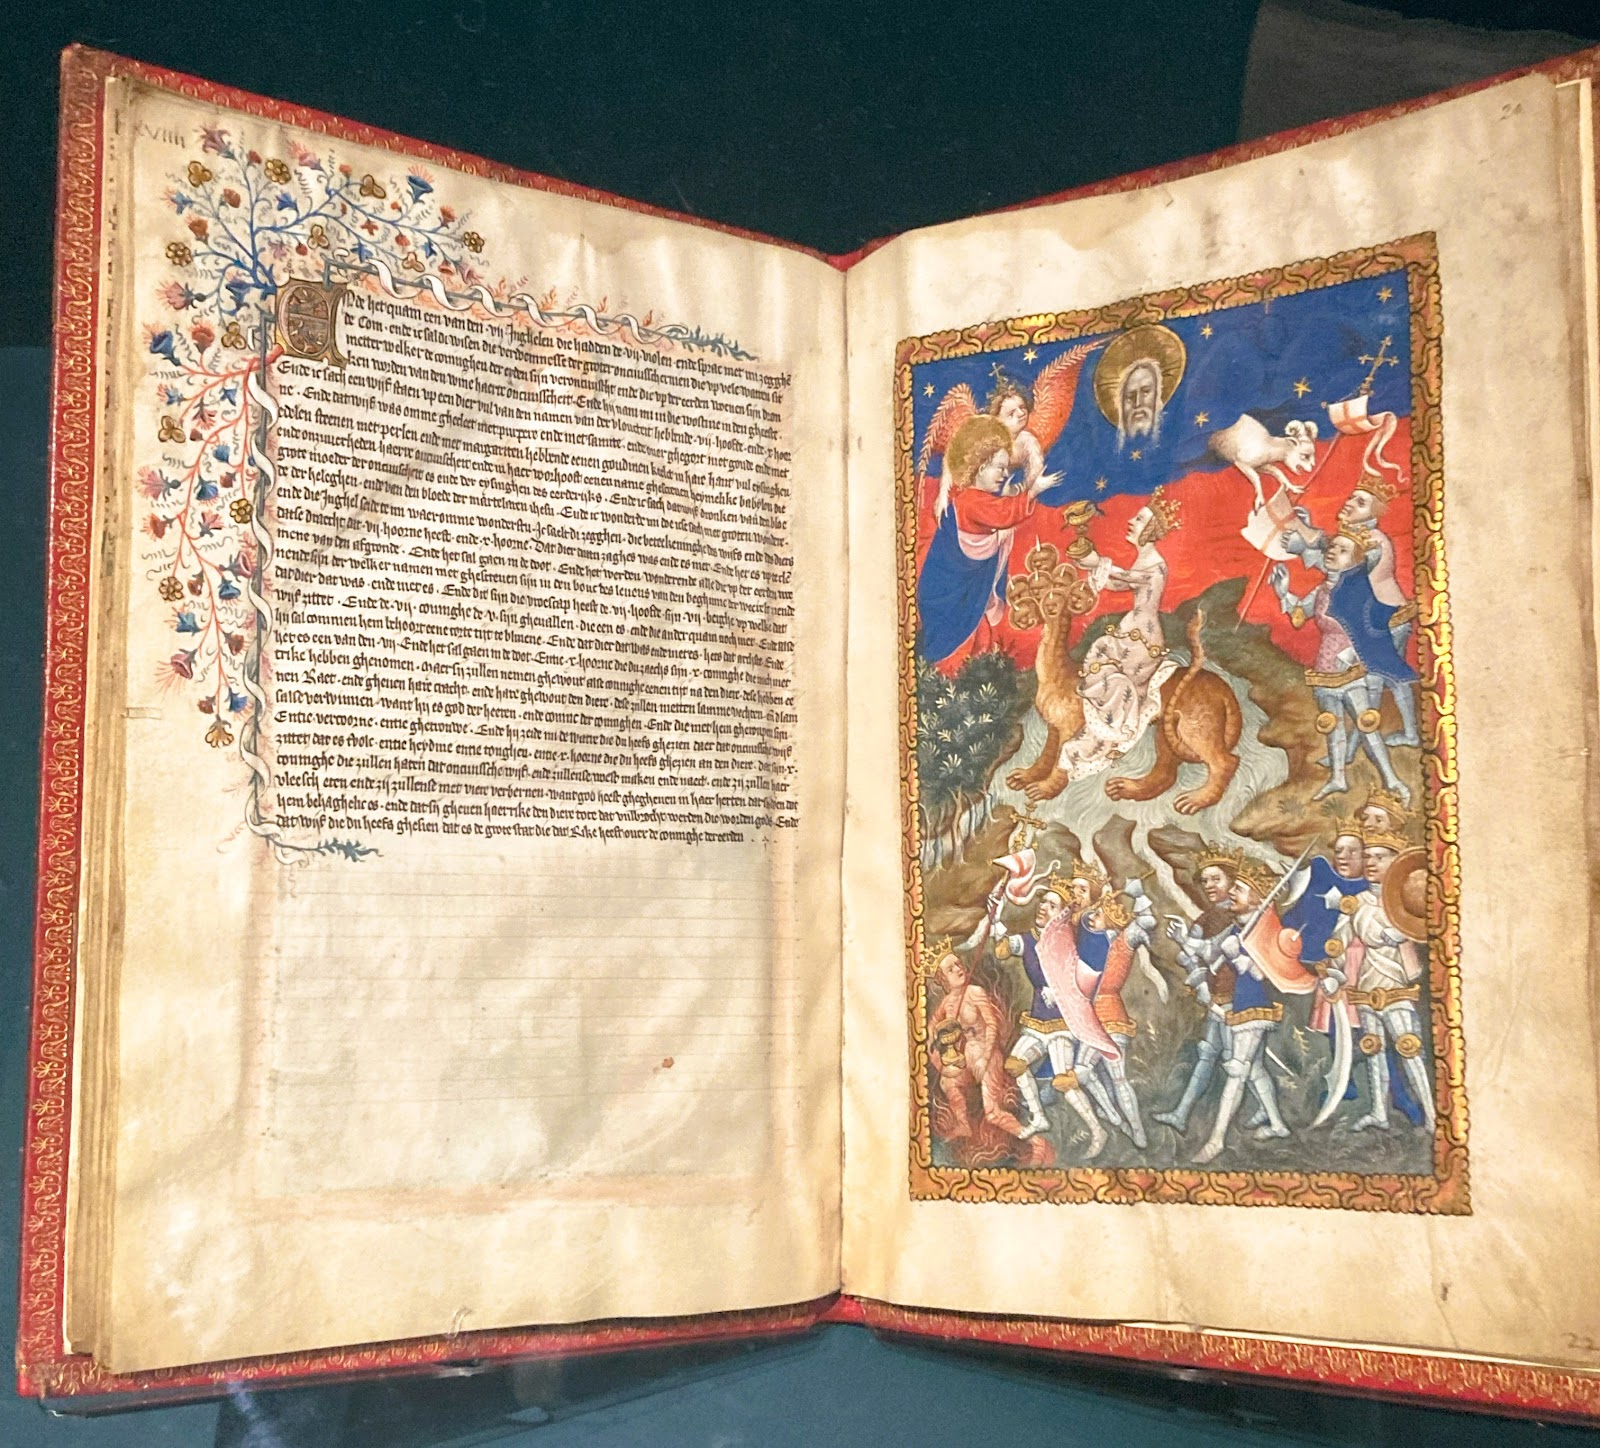 xviiii
Nde het quam een van den · vij · Jnghelen die hadden de · vij · violen · ende sprac met mi zegghe
de Com · ende ic sal di wisen die verdomenesse der groter die up vele watren sit
metter welker de coninghen der erden sijn ende die up der erden woenen sijn dron
ken worden van den wine haerre oncuusscheit · Ende hij nam mi in die wostine in den gheest ·
Ende ic sach een wijf staen up een dier vul van den namen van der hebbende · vij · hoofde · ende · x · hoor
ne · Ende dat wijf was omme ghecleet met purpere ende met samite · ende over ghegort met goude ende met
edelen steenen met perlen ende met margariten hebbende eenen goudinen in haer hant vul
ende onzuverheden haerre oncuusscheit ende in haer vorhooft eenen name ghescreven heymelike babylon die
grote moeder der oncuusscheit es ende der eysinghen des eerderijks · Ende ic sach dat wijf dronken van den bloe
de der heleghen · ende van den bloede der martelaren ihesu · Ende ic wonderde mi die ic se sach met groten wondere ·
ende die Jnghel seide te mi waeromme wonderstu · Je saelt di zegghen · die betekeninghe des wijfs ende des diers
datse draecht dat · vij · hoorne heeft · ende · x · hoorne · Dat dier dattu zaghes was ende es niet · Ende het es
mene van den afgronde · Ende het sal gaen in de doot · Ende het werden wonderende alle die up der eerden wo
nende sijn der welker namen niet ghescreven sijn in den bouc des levens van den beghinne der werelt
dat dier dat was · ende niet es · Ende dit sijn die vroescap heeft de · vij · hoofde · sijn · vij · berghe up welke dat
wijf zittet · Ende de · vij · coninghe de · v · sijn ghevallen · die een es · ende die ander quam noch niet · Ende alse
hij sal commen hem behoort eene corte tijt te blivene · Ende dat dier dat was ende niet es · hets dat achtste · Ende
het es een van den · vij · Ende het sal gaen in de doot · Entie · x · hoorne die du zaechs sijn · x · coninghe die noch niet
rike hebben ghenomen · Maer sij zullen nemen ghewout alse coninghe eenen tijt na den dier · dese hebben ee
nen Raet · ende gheven hare cracht · ende hare ghewout den diere · dese zullen metten lamme vechten · ende dlam
salse verwinnen · want hij es god der heeren · ende coninc der coninghen · Ende die met hem gheroupen sijn ·
Entie vercorne · entie ghetrouwe · Ende hij zeide mi de watre die du heefs ghezien daer dat oncuussche wijf
zittet dat es tvolc · entie heydine entie tonghen · entie · x · hoorne die du heefs ghezien an den diere · dat sijn · x ·
coninghe die zullen haten dat oncuussche wijf · ende zullense woest maken ende naect · ende zij zullen haer
vleesch eten ende zij zullense met viere verbernen · want god heeft ghegheven in haer herten dat si doen dat
hem behaghelic es · ende dat sij gheven haer rike den diere tote dat vulbrocht werden die worden gods · Ende
dat wijf die du heefs ghesien dat es de grote stat die dat Rike heeft over de coninghe der eerden
24
22